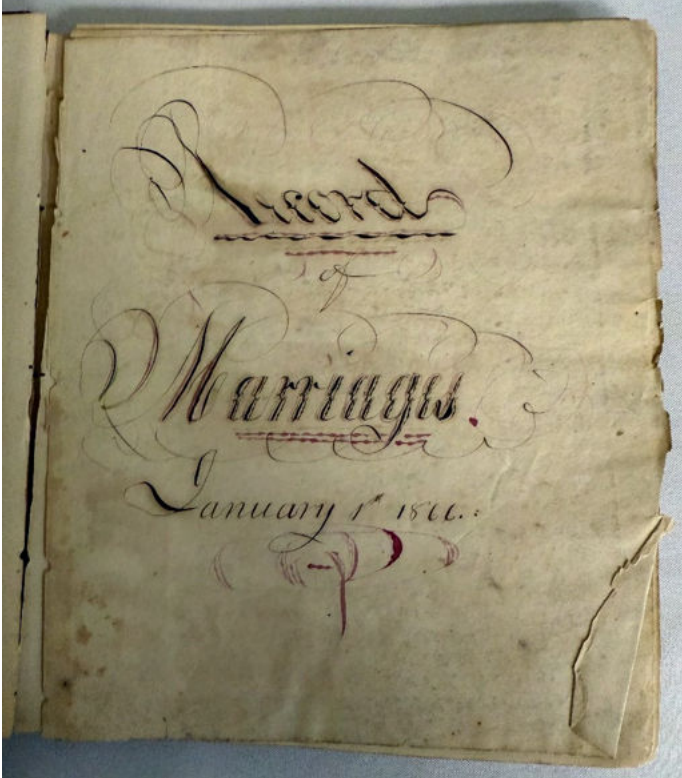 Record
of
Marriages.
January 1st